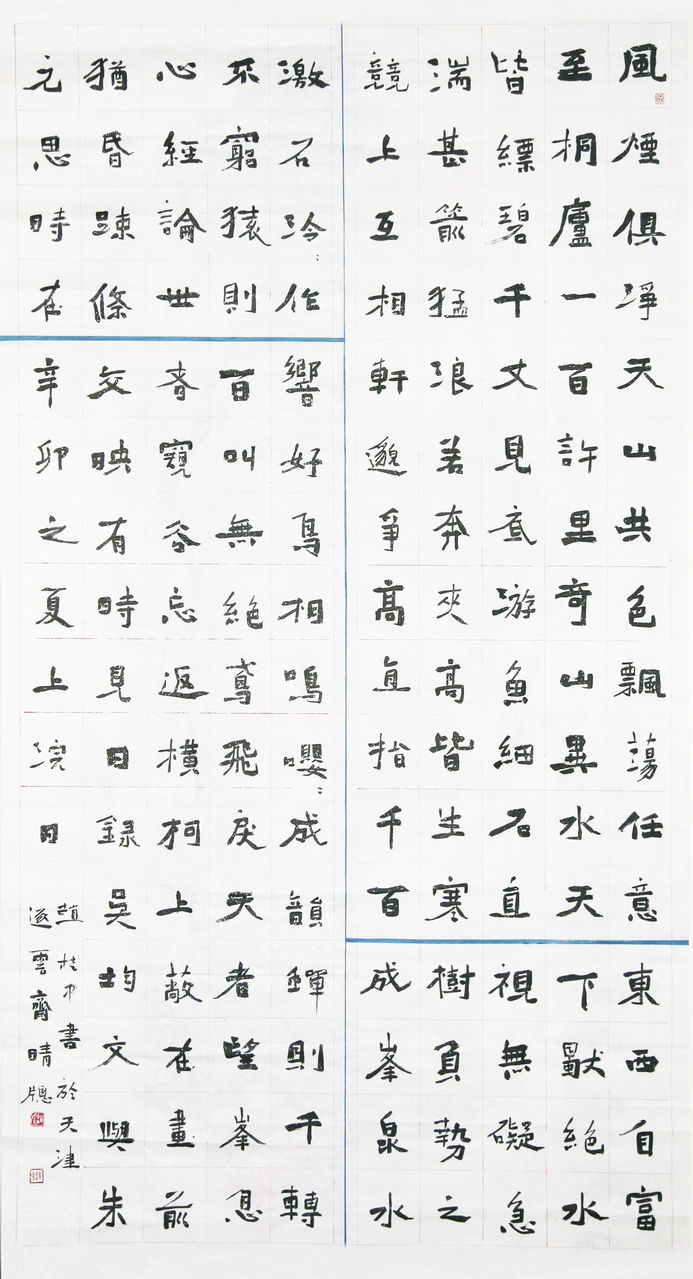 風煙俱淨天山共色飄蕩任意東西自富
至桐廬一百許里奇山異水天下獸絕水
皆縹碧千丈見底游魚細石直視無礙急
湍甚箭猛浪若奔夾高皆生寒樹負勢之
競上互相軒邈爭高直指千百成峯泉水
激石泠〻作響好鳥相鳴嚶〻成韻蟬則千轉
不窮猿則百叫無絕鳶飛戾天者望峯息
心經論世者窺谷忘返橫柯上蔽在晝前
猶昏踈條交映有時見日錄吳均文與朱
元思時在辛卯之夏上浣日
趙桂中書於天津
遂雲齋晴牕